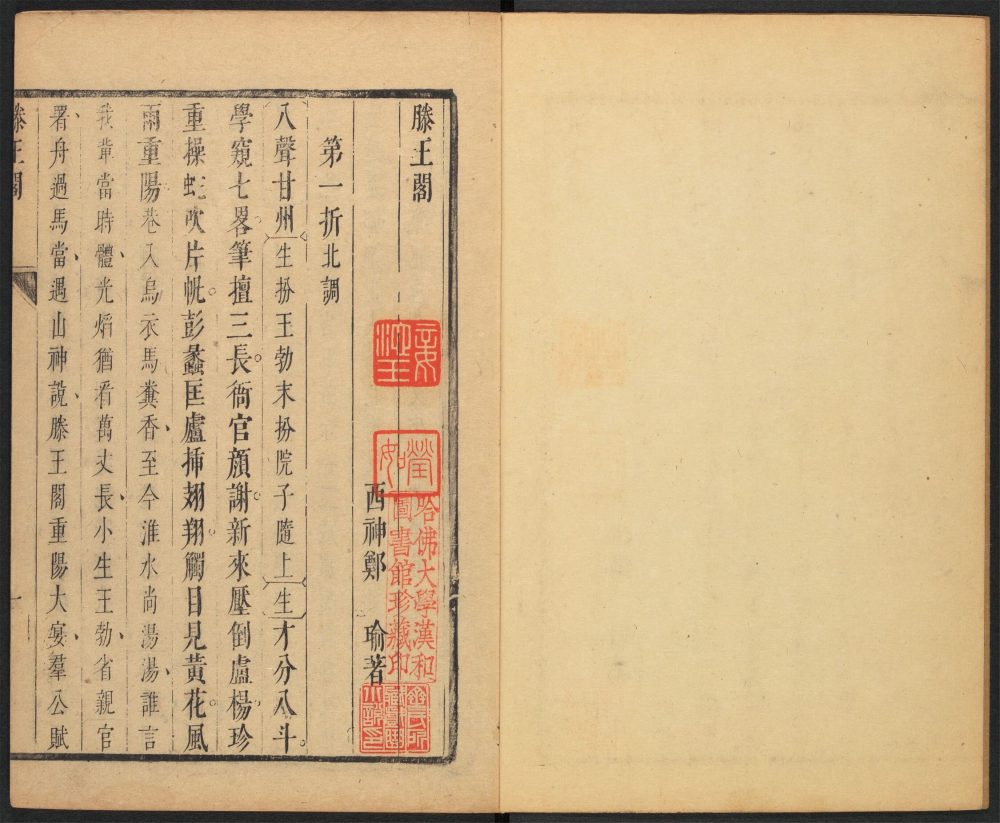 滕王閣
西神鄭 瑜著
第一折北調
八聲甘州 生扮王勃末扮院子隨上 生 才分八斗。
學窺七畧。筆擅三長。衙官顏謝。新來壓倒盧楊。珍
重操吹片帆。彭蠡匡廬揷翅翔。觸目見黃花。風
雨重陽巷入烏衣馬糞香、至今淮水尚湯湯、誰言
我輩當時體、光熖猶看萬丈長、小生王勃、省親官
署、舟過馬當、遇山神說、滕王閣重陽大宴、羣公賦
滕王閣
一
哈佛大學漢和
圖書館珍藏印
齊氏所
藏戲曲
小說印